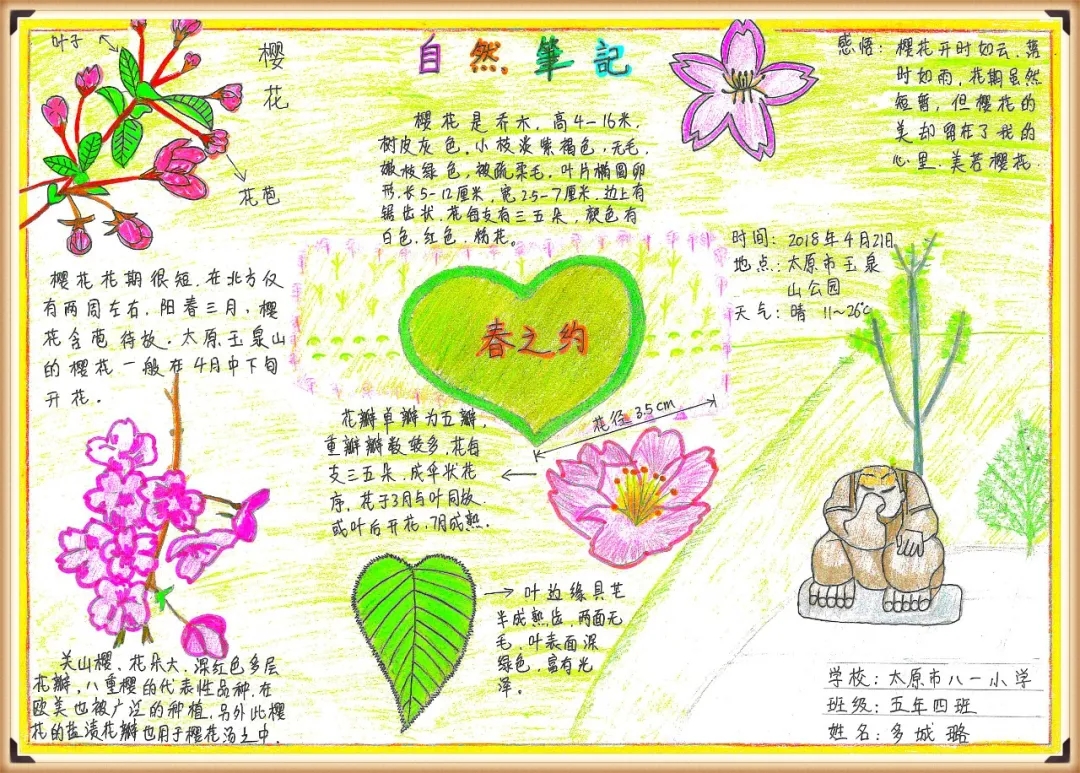 自然筆記
叶子
樱
花
花苞
樱花是乔木，高4-16米，
树皮灰色。小枝淡紫褐色，无毛，
嫩枝绿色，被疏柔毛。叶片椭圆卵
形，长5-12厘米，宽2.5-7厘米，边上有
锯齿状，花每支有三五朵，颜色有
白色，红色，粉花。
感悟：樱花开时如云，落
时如雨，花期虽然
短暂，但樱花的
美却留在了我的
心里，美若樱花．
时间：2018年4月21日
地点：太原市玉泉
山公园
天气：晴 11~26℃
樱花花期很短，在北方仅
有两周左右，阳春三月，樱
花含苞待放。太原玉泉山
的樱花一般在4月中下旬
开花．
春之约
花径 3.5cm
花瓣单瓣为五瓣，
重瓣瓣数较多，花每
支三五朵，成伞状花
序，花于3月与叶同放
或叶后开花，7月成熟．
叶边缘具芒
半成熟齿，两面无
毛，叶表面深
绿色，富有光
泽。
关山樱、花朵大、深红色多层
花瓣，八重樱的代表性品种，在
欧美也被广泛的种植，另外此樱
花的盐渍花瓣也用于樱花汤之中．
学校：太原市八一小学
班级：五年四班
姓名：多城璐